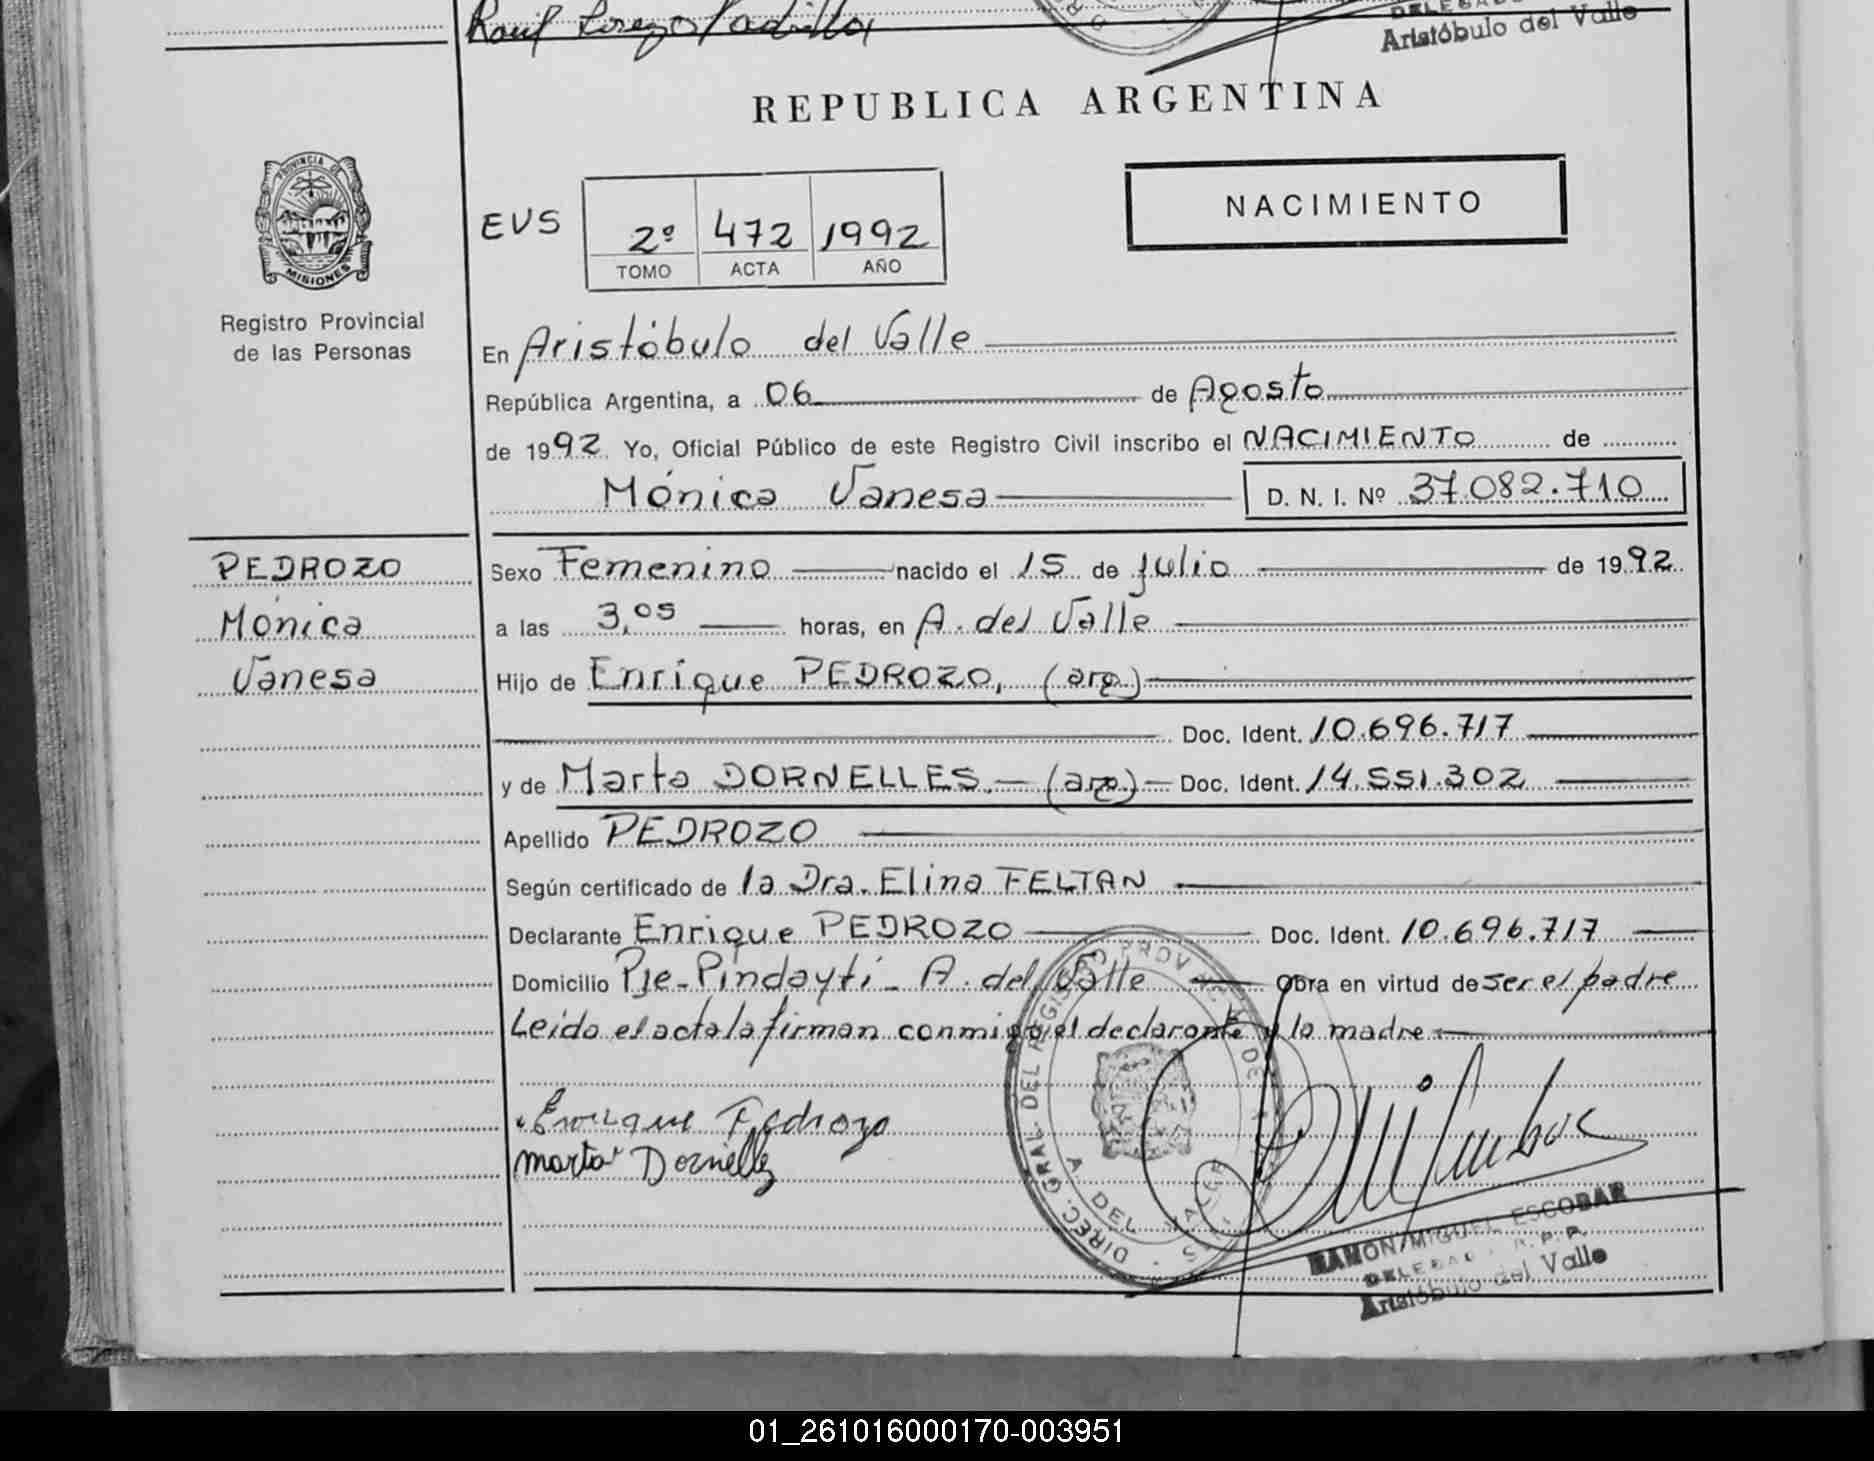 Raúl
DELEGADO
Aristóbulo del Valle
REPUBLICA ARGENTINA
PROVINCIA DE
MISIONES
Registro Provincial
de las Personas
EVS
2º 472 1992
TOMO ACTA AÑO
NACIMIENTO
En Aristóbulo del Valle
República Argentina, a 06 de Agosto
de 1992 Yo, Oficial Público de este Registro Civil inscribo el NACIMIENTO de
Mónica Vanesa D. N. I. Nº 37.082.710
PEDROZO
Mónica
Vanesa
Sexo Femenino nacido el 15 de julio de 1992
a las 3,05 horas, en A. del Valle
Hijo de Enrique PEDROZO, (arg)
Doc. Ident. 10.696.717
y de Marta DORNELLES.- (arg.)- Doc. Ident. 14.551.302
Apellido PEDROZO
Según certificado de la Dra. Elina FELTAN
Declarante Enrique PEDROZO Doc. Ident. 10.696.717
Domicilio Pje-Pindaytí- A. del Valle Obra en virtud de ser el padre
Leida el acta la firman conmigo el declarante y la madre
Enrique Pedrozo
Marta Dornelles
DIREC. GRAL. DEL REGISTRO PROV
A DEL VALLE
RAMON MIGUEL ESCOBAR
DELEGADO R. P. P.
Aristóbulo del Valle
01_261016000170-003951